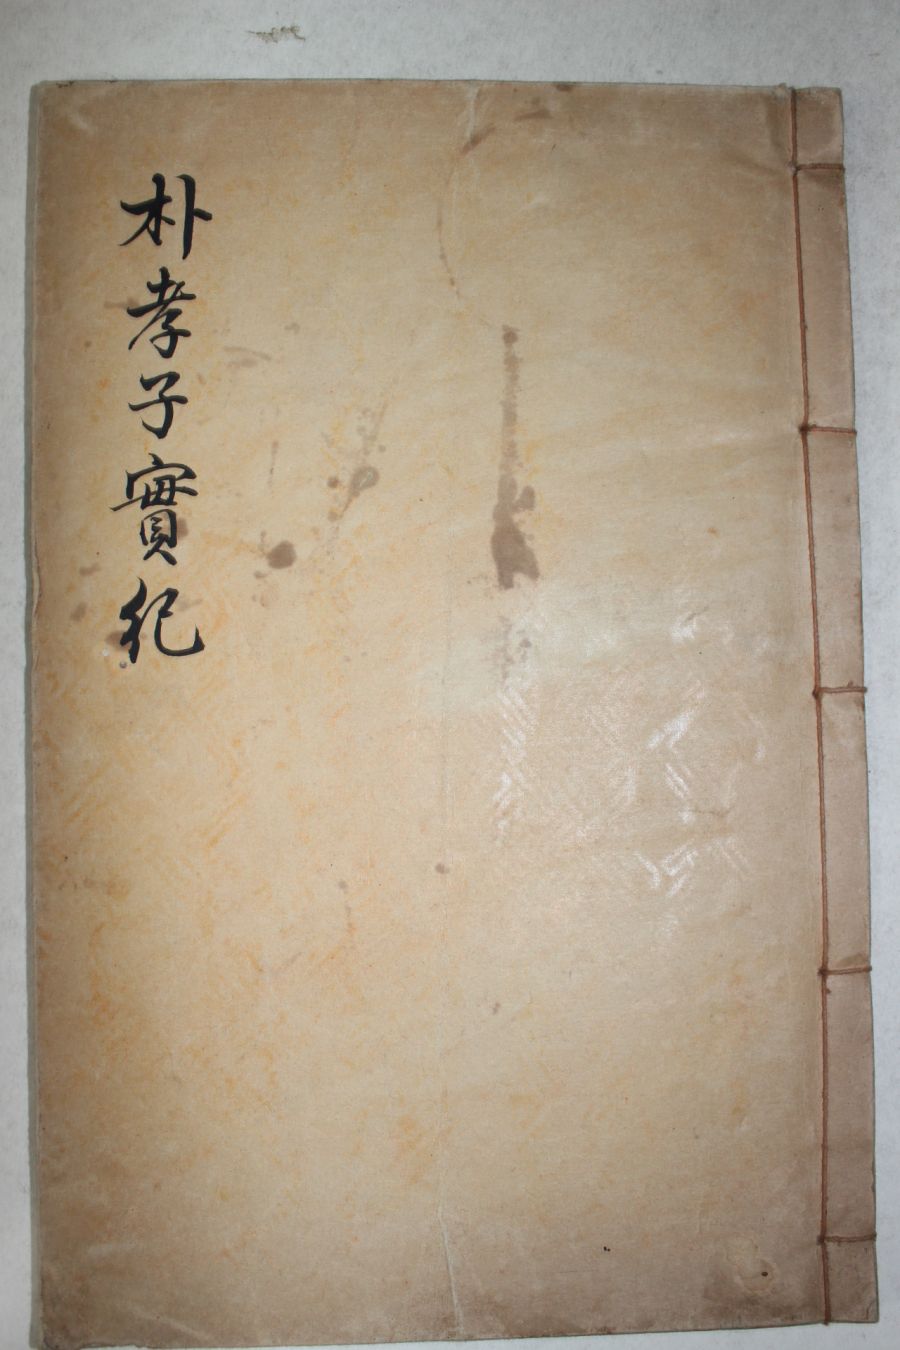 朴孝子實紀